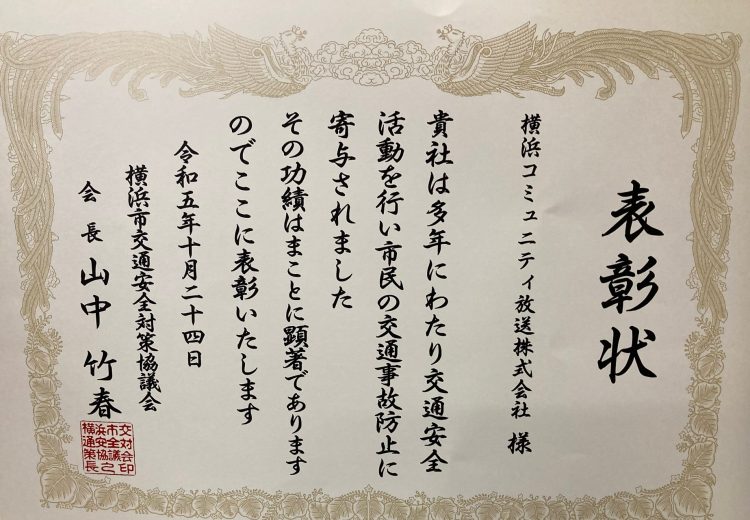 表彰状
横浜コミュニティ放送株式会社 様
貴社は多年にわたり交通安全
活動を行い市民の交通事故防止に
寄与されました
その功績はまことに顕著であります
のでここに表彰いたします
令和五年十月二十四日
横浜市交通安全対策協議会
会長 山中 竹春